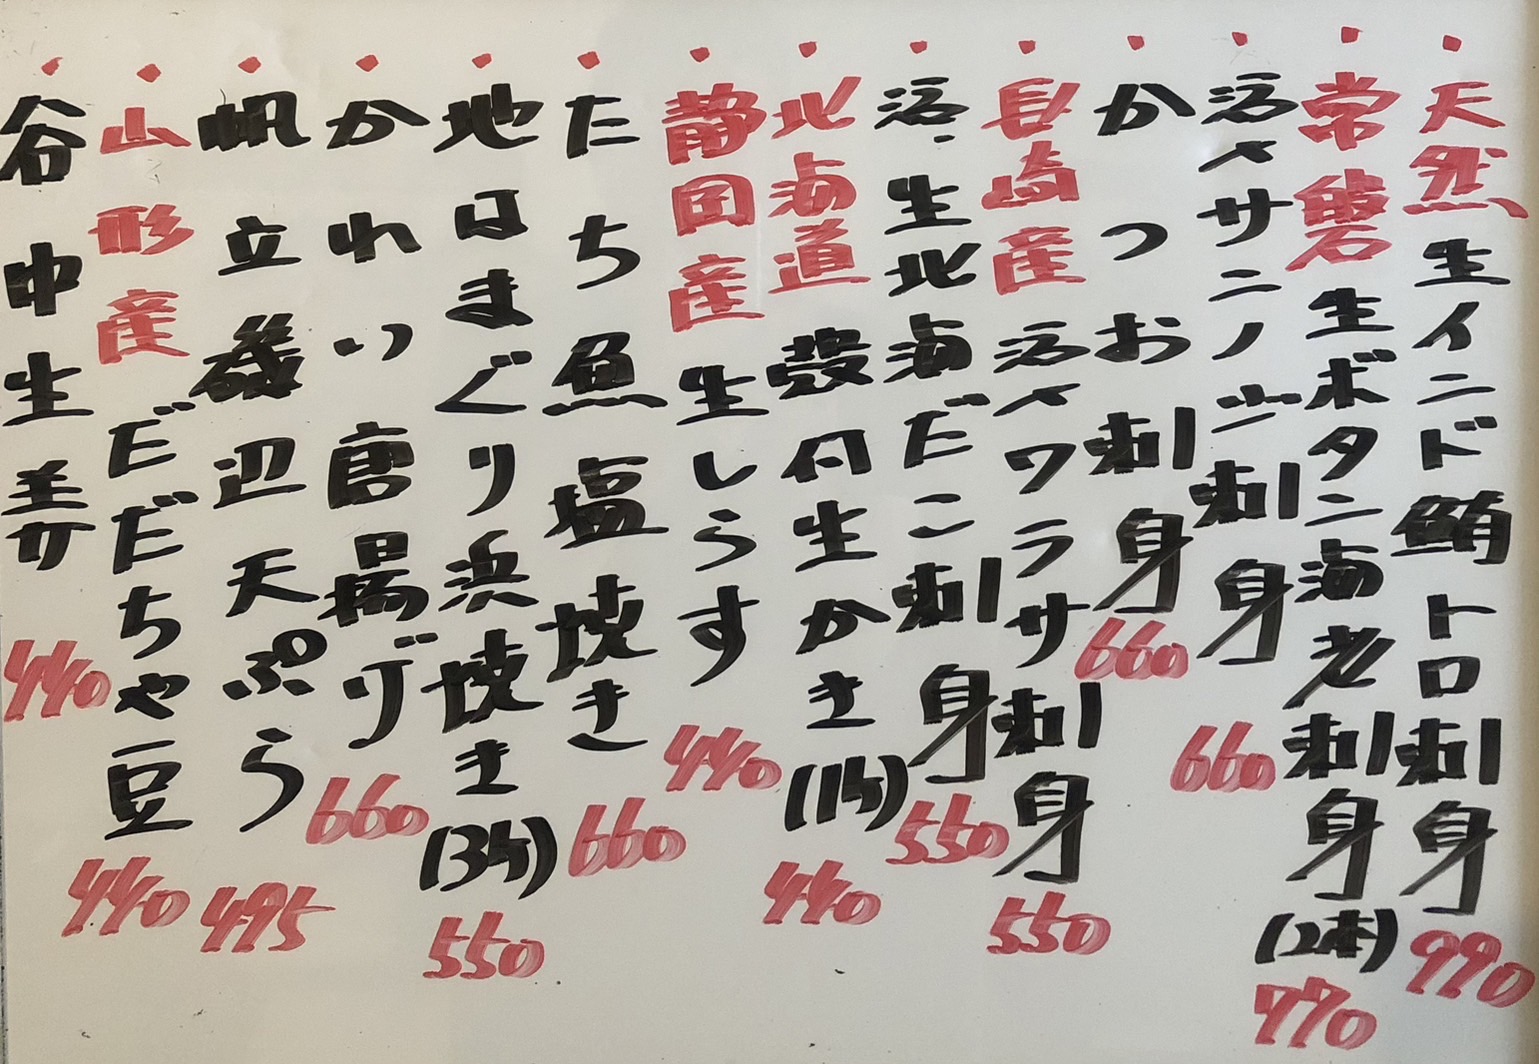 ・天然生インド鮪トロ刺身 990
・常磐生ボタン海老刺身(2本) 770
・活〆サニノ刺身 660
・かつお刺身 660
・長崎産活〆ワラサ刺身 550
・活、生北海だこ刺身 550
・北海道殻付生かき(1ヶ) 440
・静岡産生しらす 440
・たち魚塩焼き 660
・地はまぐり浜焼き(3ヶ) 550
・かれい唐揚げ 660
・帆立磯辺天ぷら 495
・山形産だだちゃ豆 440
・谷中生姜 440